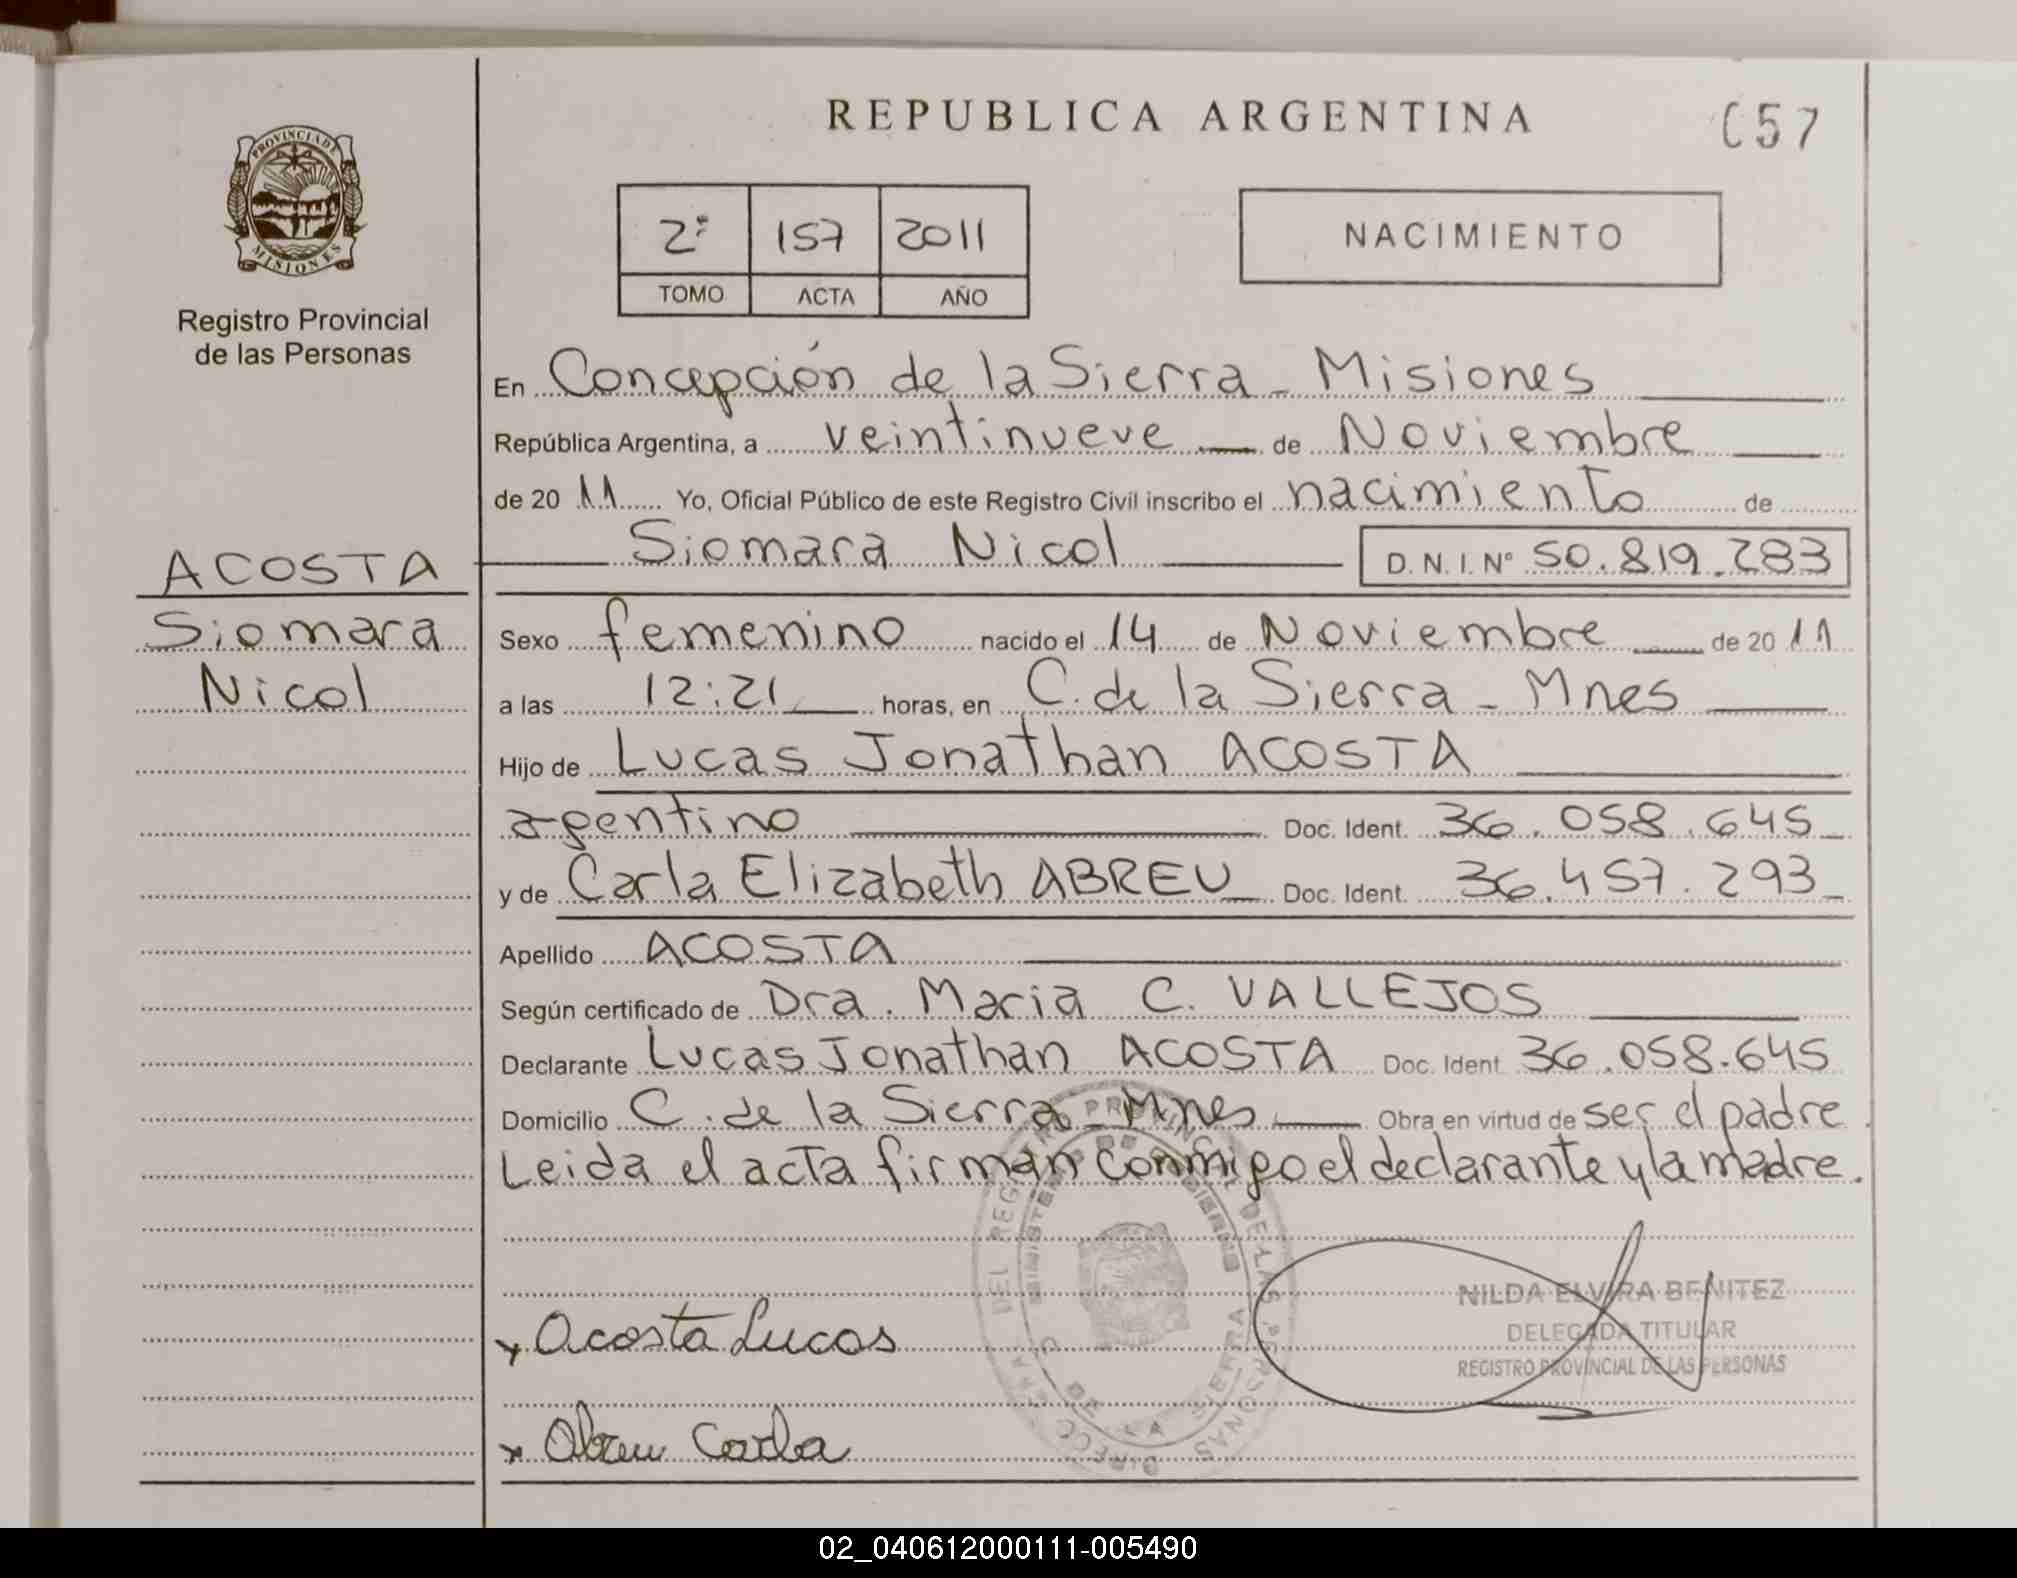 REPUBLICA ARGENTINA
057
PROVINCIA DE
MISIONES
Registro Provincial
de las Personas
2º 157 2011
TOMO ACTA AÑO
NACIMIENTO
En Concepción de la Sierra - Misiones
República Argentina, a veintinueve de Noviembre
de 20 11 Yo, Oficial Público de este Registro Civil inscribo el nacimiento de
Siomara Nicol D. N. I. Nº 50.819.283
ACOSTA
Siomara
Nicol
Sexo femenino nacido el 14 de Noviembre de 20 11
a las 12:21 horas, en C. de la Sierra - Mnes
Hijo de Lucas Jonathan ACOSTA
argentino Doc. Ident. 36.058.645
y de Carla Elizabeth ABREU Doc. Ident. 36.457.293
Apellido ACOSTA
Según certificado de Dra. Maria C. VALLEJOS
Declarante Lucas Jonathan ACOSTA Doc. Ident 36.058.645
Domicilio C. de la Sierra - Mnes Obra en virtud de ser el padre
Leida el acta firman conmigo el declarante y la madre.
NILDA ELVIRA BENITEZ
DELEGADA TITULAR
REGISTRO PROVINCIAL DE LAS PERSONAS
Acosta Lucas
Abreu Carla
DEL REGISTRO PROVINCIAL DE LAS PERSONAS
DE LA SIERRA
02_040612000111-005490